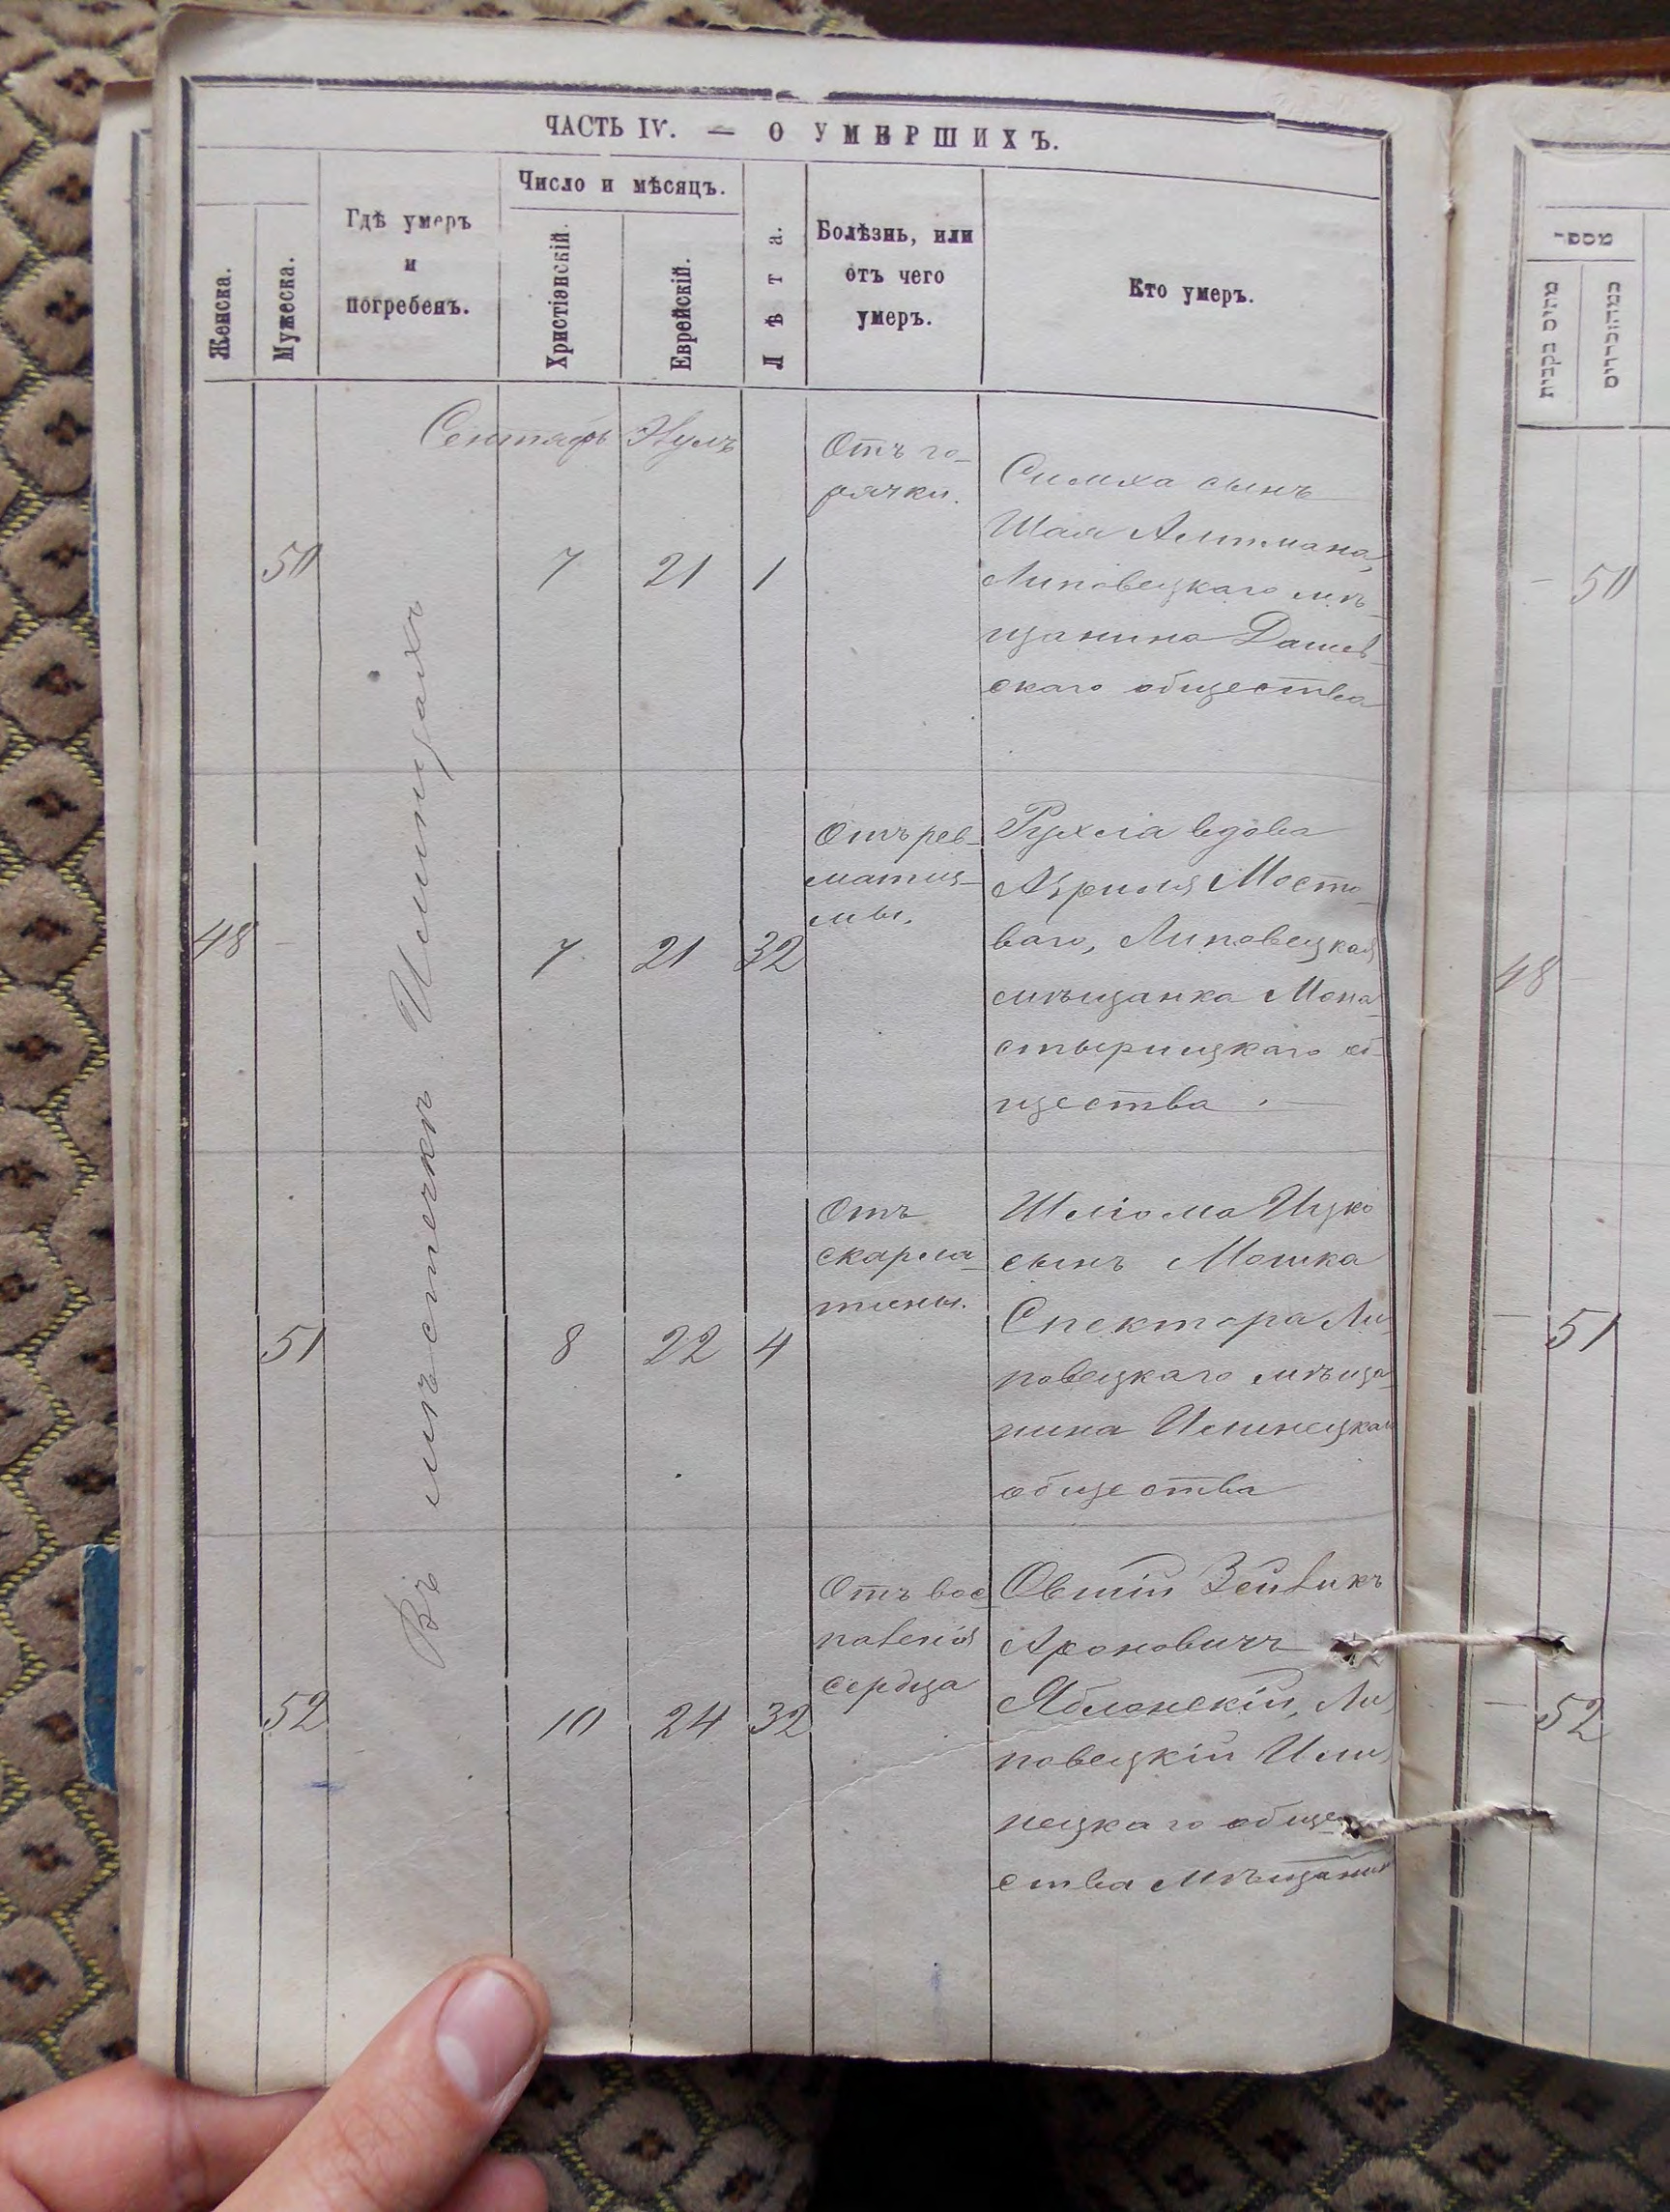 ЧАСТЬ IV. — О УМЕРШИХЪ.
Женска.
Мужеска.
Гдѣ умеръ
и
погребенъ.
Число и мѣсяцъ.
Христіанскій.
Еврейскій.
Лѣта.
Болѣзнь, или
отъ чего
умеръ.
Кто умеръ.
Въ мѣстечкѣ Илинцахъ
Сентябрь
50
7
21
1
Отъ го-
рячки.
Симха сынъ
Шая Алтмана,
Липовецкаго мѣ-
щанина Дашев-
скаго общества
48
7
21
32
Отъ рев-
матиз-
мы.
Рухля вдова
Мосто-
ваго, Липовецкая
мѣщанка Мона-
стырищкаго об-
щества
51
8
22
4
Отъ
скарла-
тины.
Шліома Ицко
сынъ Мошка
Спектора Ли-
повецкаго мѣща-
нина Илинецкаго
общества
52
10
24
32
Отъ вос-
паленія
сердца
Овшій Зейликъ
Ароновичъ
Яблонскій, Ли-
повецкій Или-
нецкаго обще-
ства мѣщанинъ
מספר
50
48
51
52